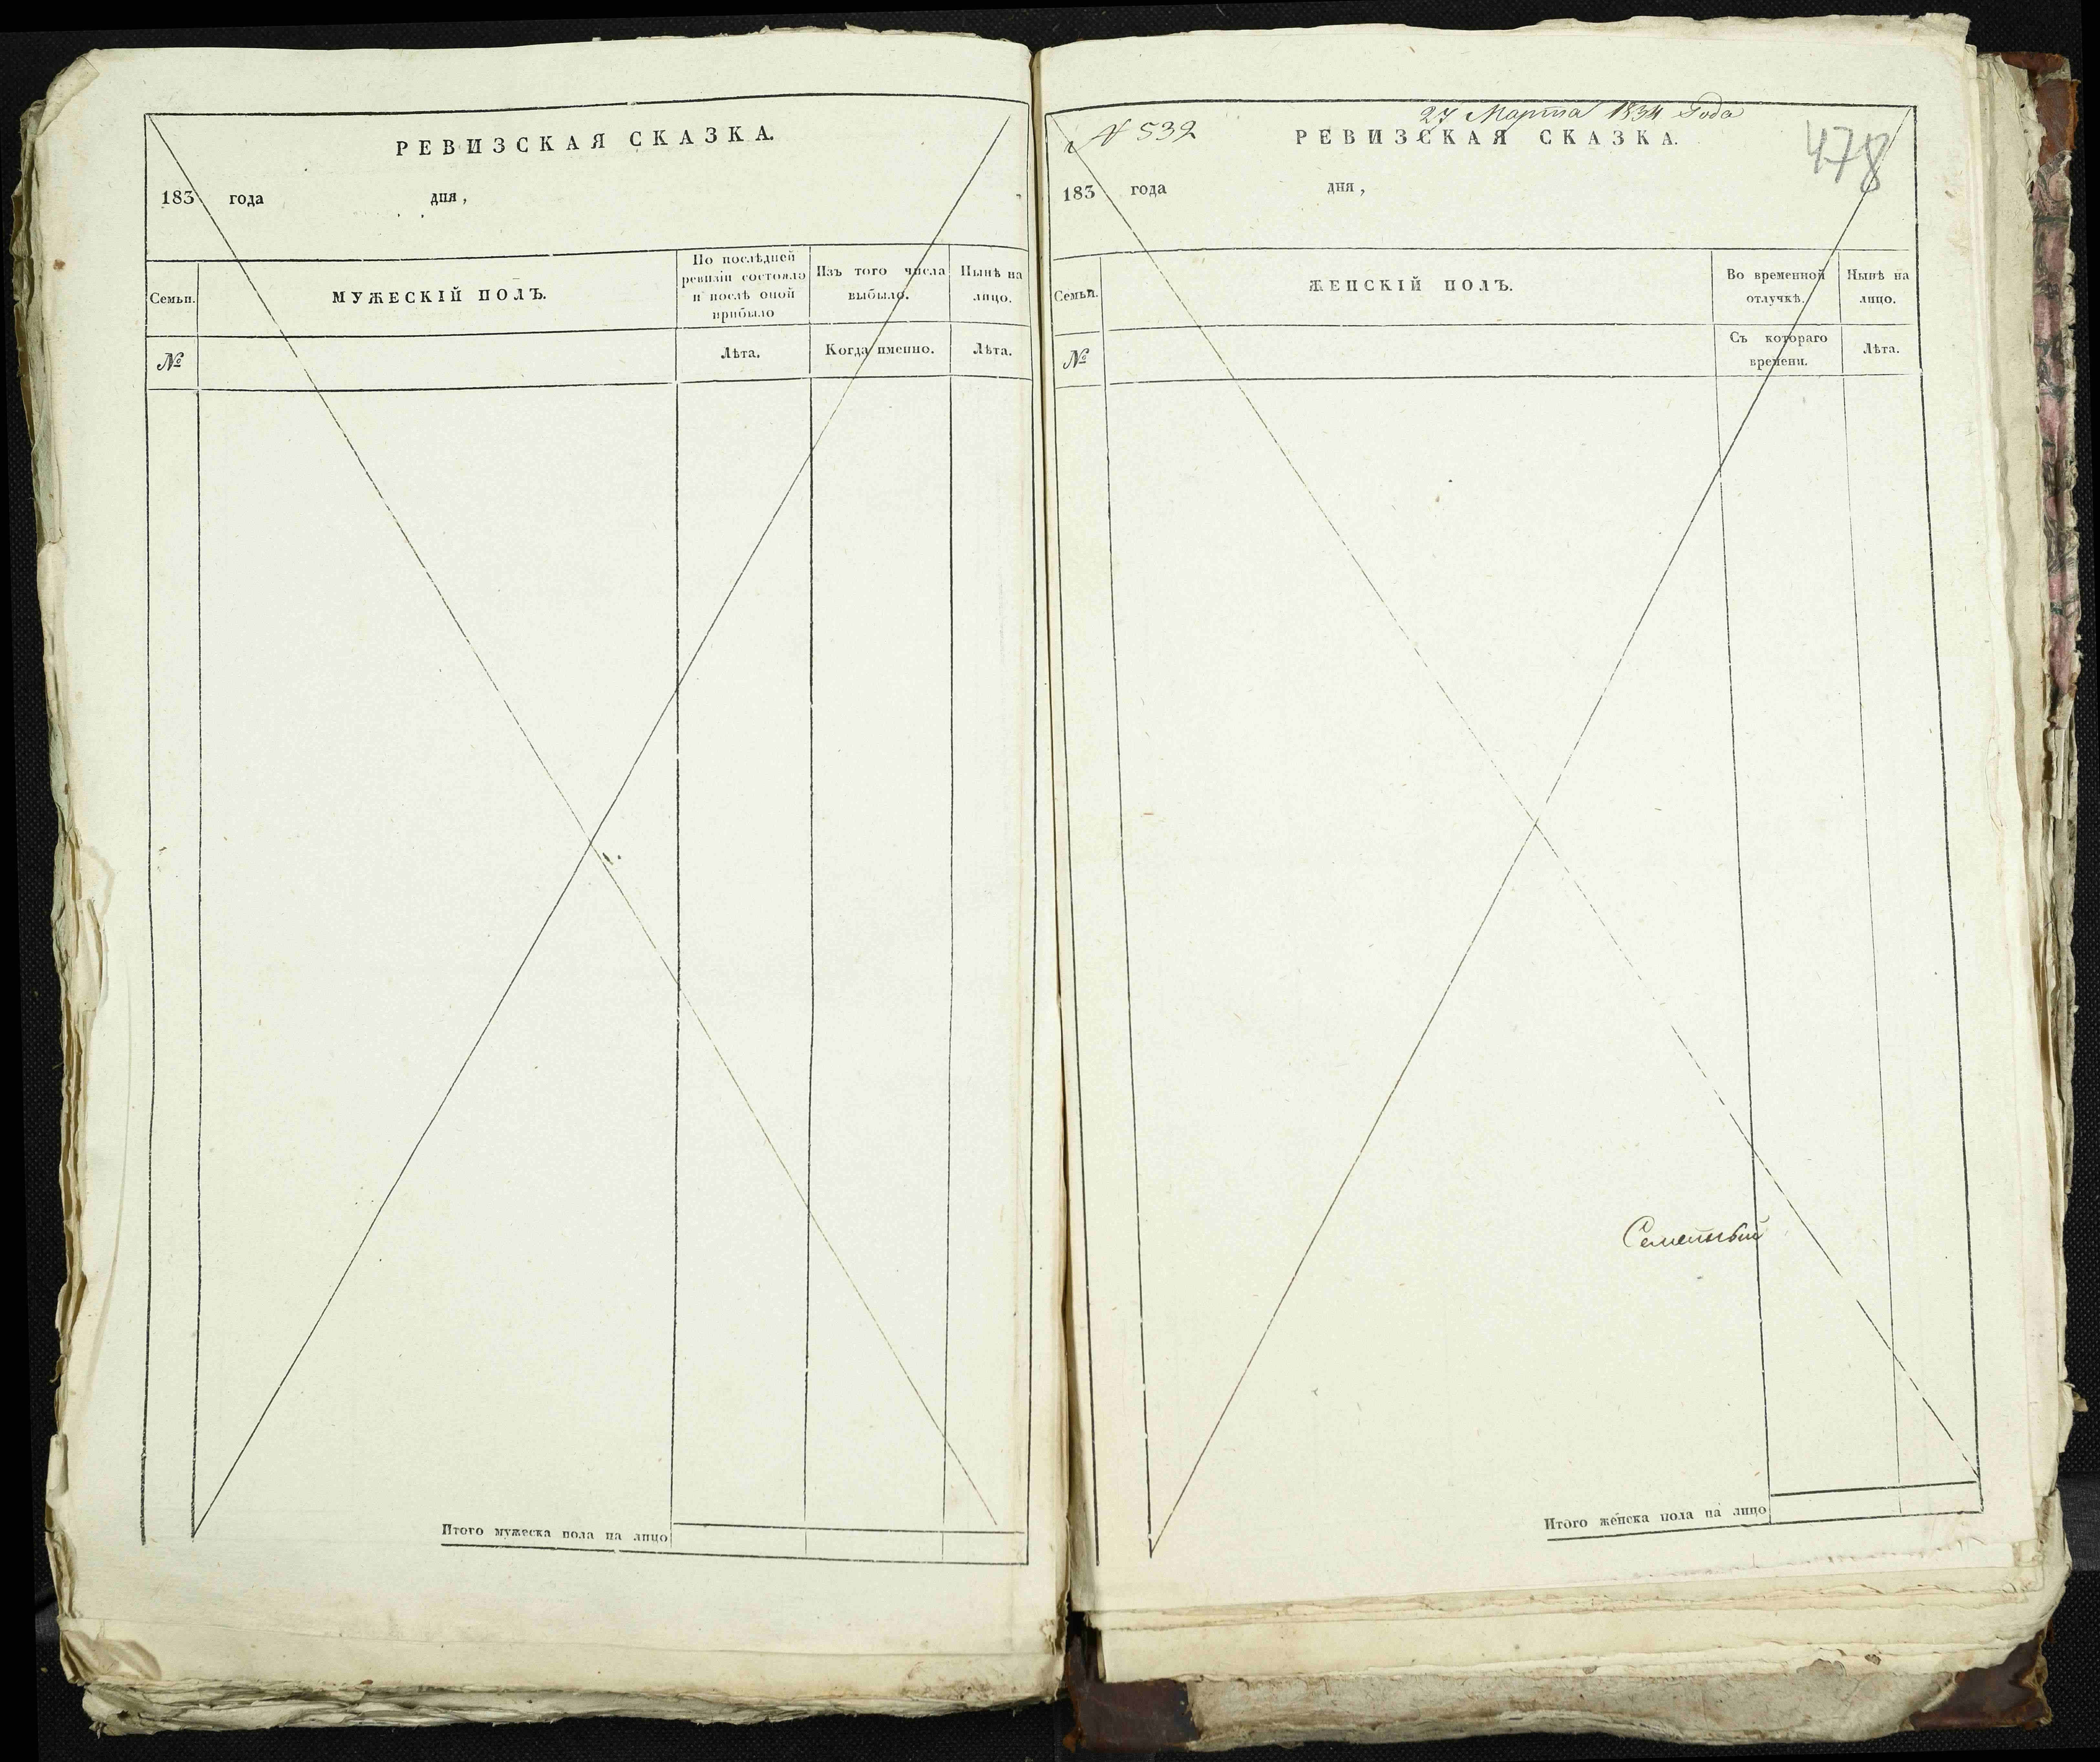 РЕВИЗСКАЯ СКАЗКА.
183 года дня,
Семьи.
МУЖЕСКІЙ ПОЛЪ.
По послѣдней
ревизіи состояло
и послѣ оной
прибыло
Изъ того числа
выбыло.
Нынѣ на
лицо.
№
Лѣта.
Когда именно.
Лѣта.
Итого мужеска пола на лицо
27 Марта 1834 Года
№ 532
РЕВИЗСКАЯ СКАЗКА.
478
183 года дня,
Семьи.
ЖЕНСКІЙ ПОЛЪ.
Во временной
отлучкѣ.
Нынѣ на
лицо.
№
Съ котораго
времени.
Лѣта.
Итого женска пола на лицо